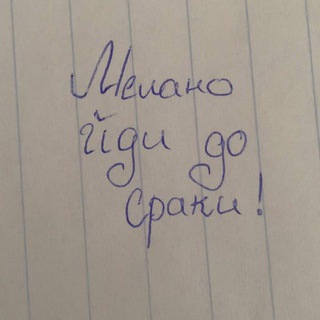 Мелано
йди до
сраки!